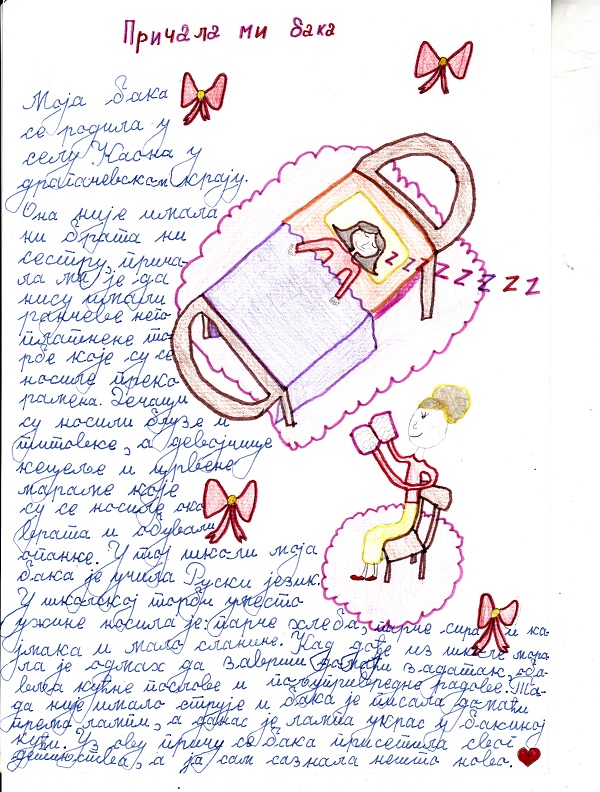 Причала ми бака
Моја бака
се родила у
селу Каона у
драгачевском крају.
Она није имала
ни брата ни
сестру, прича-
ла ми је да
нису имали
ранчеве него
платнене то
рбе које су се
носиле преко
рамена. Дечаци
су носили блузе и
титовке, а девојчице
кецеље и црвене
мараме које
су се носиле око
врата и обували
опанке. У тој школи моја
бака је учила Руски језик.
У школској торби уместо
ужине носила је: парче хлеба, парче сира и ка
јмака и мало сланине. Кад дође из школе мора-
ла је одмах да заврши домаћи задатак, оба-
вља кућне послове и пољупривредне радове. Та-
да није имало струје и бака је писала домаћи
према лампи, а данас је лампа украс у бакиној
кући. Уз ову причу се бака присетила свог
детињства, а ја сам сазнала нешто ново.
Z Z Z Z Z Z Z